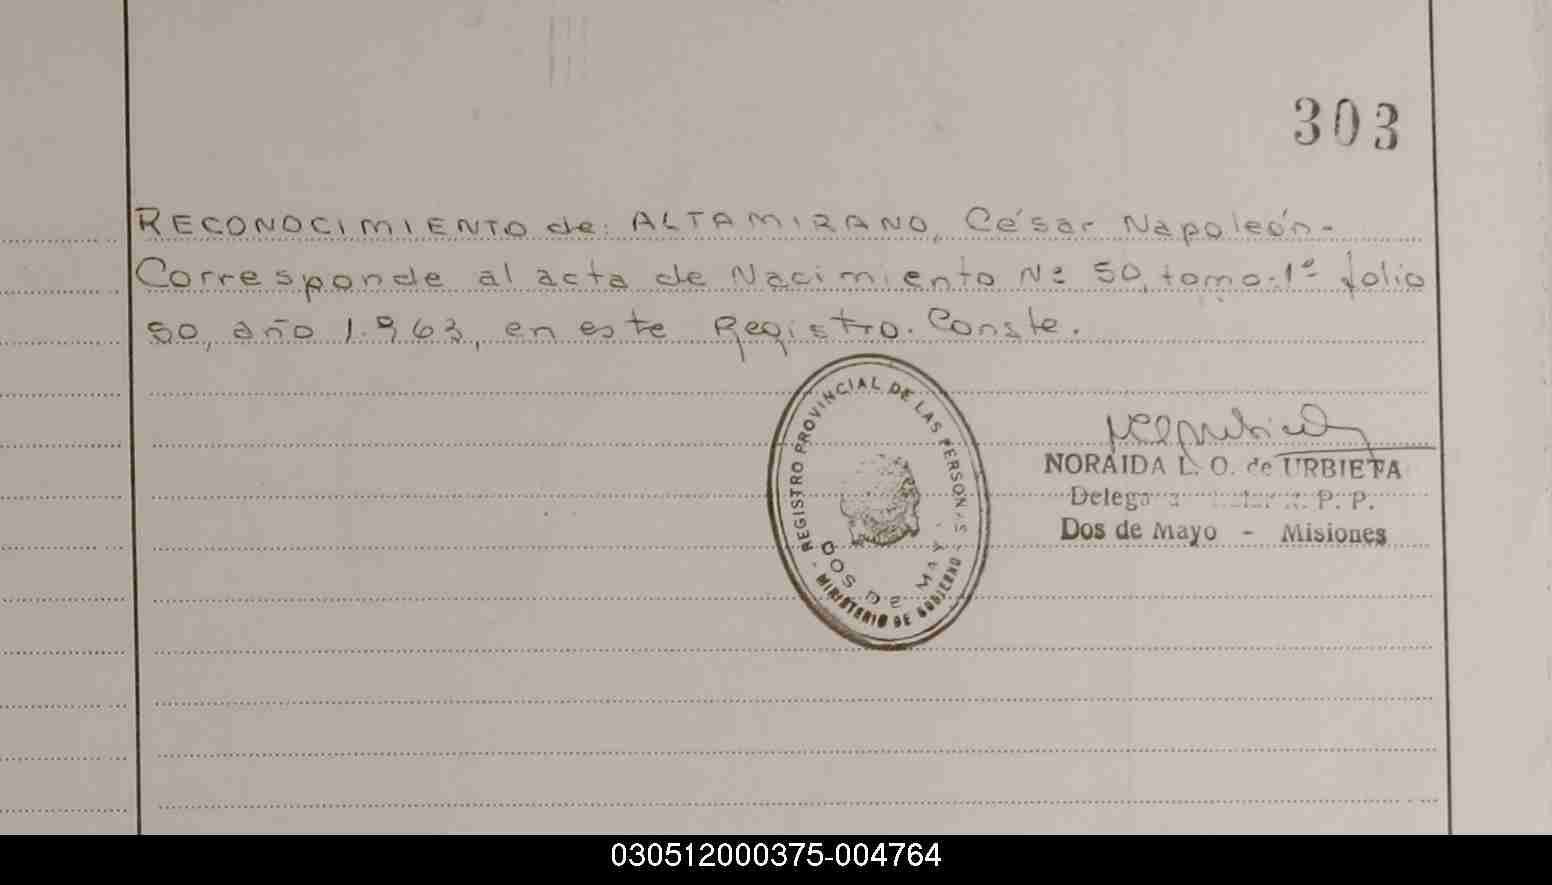 303
RECONOCIMIENTO de: ALTAMIRANO, César Napoleón.-
Corresponde al acta de Nacimiento Nº 50, tomo-1º folio
50, año 1.963, en este Registro. Conste.
REGISTRO PROVINCIAL DE LAS PERSONAS
DOS DE MAYO
- MINISTERIO DE GOBIERNO -
NORAIDA L. O. de URBIETA
P. P.
Dos de Mayo - Misiones
030512000375-004764